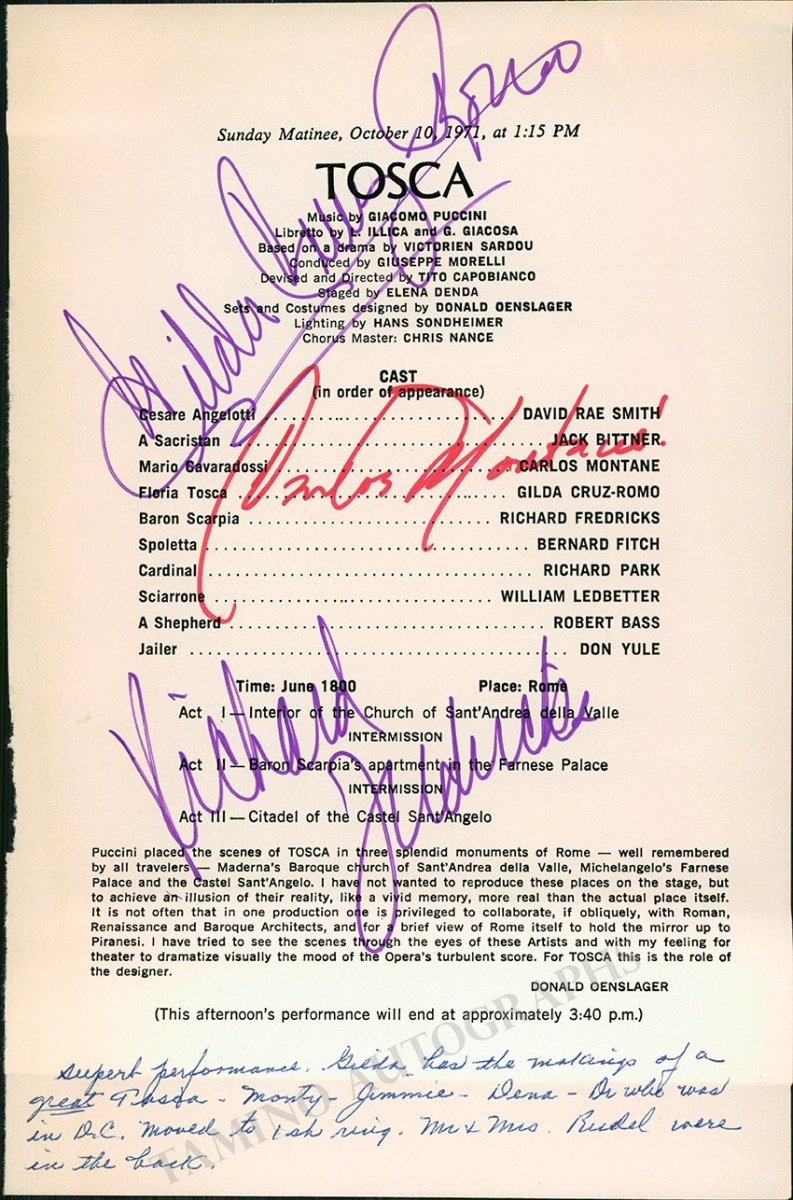 Sunday Matinee, October 10, 1971, at 1:15 PM
TOSCA
Music by GIACOMO PUCCINI
Libretto by L. ILLICA and G. GIACOSA
Based on a drama by VICTORIEN SARDOU
Conducted by GIUSEPPE MORELLI
Devised and Directed by TITO CAPOBIANCO
Staged by ELENA DENDA
Sets and Costumes designed by DONALD OENSLAGER
Lighting by HANS SONDHEIMER
Chorus Master: CHRIS NANCE
Gilda Cruz-Romo
CAST
(in order of appearance)
Cesare Angelotti . . . . . . . . . . DAVID RAE SMITH
A Sacristan . . . . . . . . . . JACK BITTNER
Mario Cavaradossi . . . . . . . . . . CARLOS MONTANE
Floria Tosca . . . . . . . . . . GILDA CRUZ-ROMO
Baron Scarpia . . . . . . . . . . RICHARD FREDRICKS
Spoletta . . . . . . . . . . BERNARD FITCH
Cardinal . . . . . . . . . . RICHARD PARK
Sciarrone . . . . . . . . . . WILLIAM LEDBETTER
A Shepherd . . . . . . . . . . ROBERT BASS
Jailer . . . . . . . . . . DON YULE
Carlos Montane!
Time: June 1800 Place: Rome
Act I — Interior of the Church of Sant'Andrea della Valle
INTERMISSION
Act II — Baron Scarpia's apartment in the Farnese Palace
INTERMISSION
Act III — Citadel of the Castel Sant'Angelo
Richard Fredricks
Puccini placed the scenes of TOSCA in three splendid monuments of Rome — well remembered
by all travelers — Maderna's Baroque church of Sant'Andrea della Valle, Michelangelo's Farnese
Palace and the Castel Sant'Angelo. I have not wanted to reproduce these places on the stage, but
to achieve an illusion of their reality, like a vivid memory, more real than the actual place itself.
It is not often that in one production one is privileged to collaborate, if obliquely, with Roman,
Renaissance and Baroque Architects, and for a brief view of Rome itself to hold the mirror up to
Piranesi. I have tried to see the scenes through the eyes of these Artists and with my feeling for
theater to dramatize visually the mood of the Opera's turbulent score. For TOSCA this is the role of
the designer.
DONALD OENSLAGER
(This afternoon's performance will end at approximately 3:40 p.m.)
Superb performance. Gilda has the makings of a
great Tosca - Monty - Jimmie - Dena - who was
in D.C. moved to ring. Mr & Mrs. Rudel were
in the back.
TAMINO AUTOGRAPHS